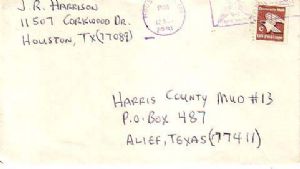 J.R. HARRISON
11507 CORKWOOD DR.
HOUSTON, TX (77089)
HARRIS COUNTY MUD #13
P.O. BOX 487
ALIEF, TEXAS (77411)